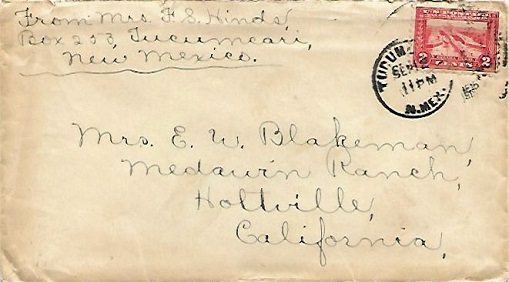 From Mrs. F. S. Hinds,
Box 233 Tucumcari,
New Mexico.
TUCUM
SEP
11 PM
N. MEX.
2 2
Mrs. E. W. Blakeman,
Medawin Ranch,
Holtville,
California,